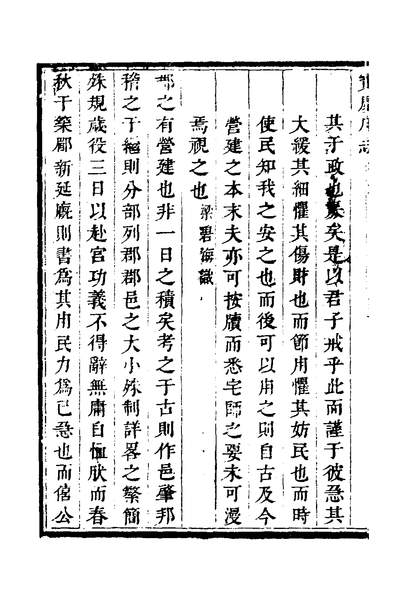 寶慶府志
其于政也亥矣是以君子戒乎此而謹于彼急其
大緩其細懼其傷財也而節用懼其妨民也而時
使民知我之安之也而後可以用之則自古及今
營建之本末夫亦可按牘而悉宅師之要未可漫
焉視之也 梁碧海識
郡之有營建也非一日之積矣考之于古則作邑肇邦
稽之于經則分部列郡郡邑之大小殊制詳畧之繁簡
殊規歲役三日以赴官功義不得辭無庸自恤肰而春
秋于築郿新延廐則書爲其用民力爲已急也而僖公